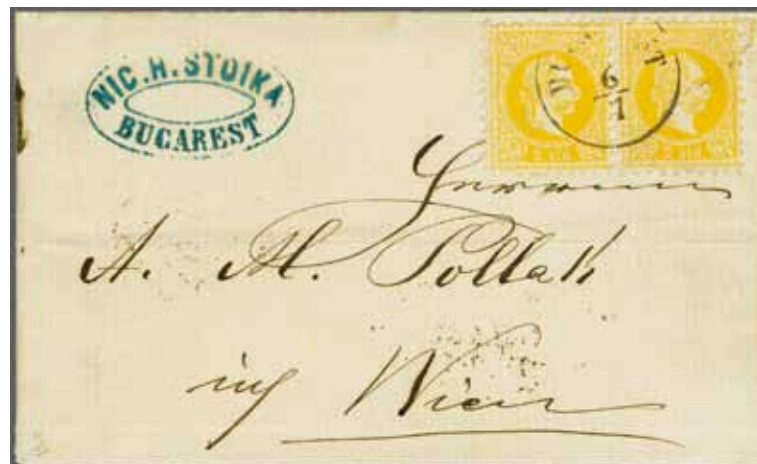 NIC. H. STOIKA
BUCAREST
6/1
Herrn
A. M. Pollak
in Wien